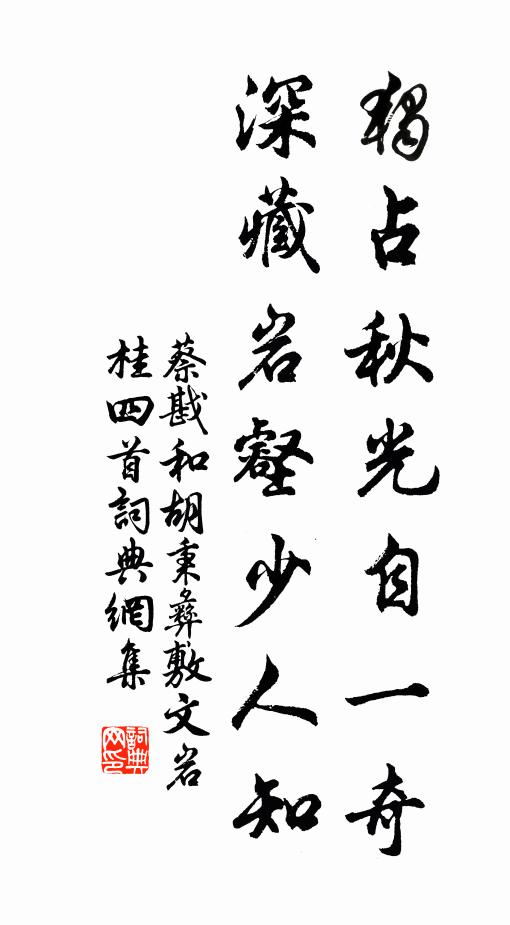 獨占秋光自一奇
深藏岩壑少人知
蔡戡和胡秉彝敷文岩
桂四首詞典網集
詞典
网印